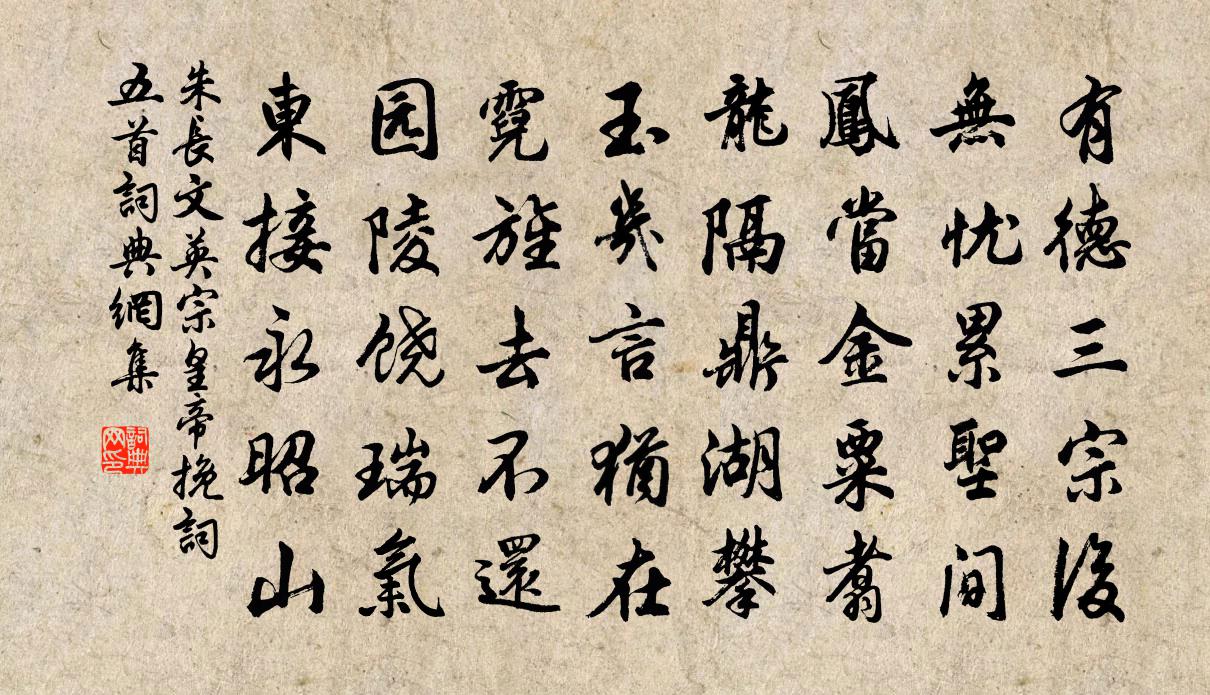 有德三宗後
無忧累聖间
鳳當金粟翥
龍隔鼎湖攀
玉几言猶在
霓旌去不還
园陵饶瑞氣
東接永昭山
朱長文英宗皇帝挽詞
五首詞典網集
詞典网印